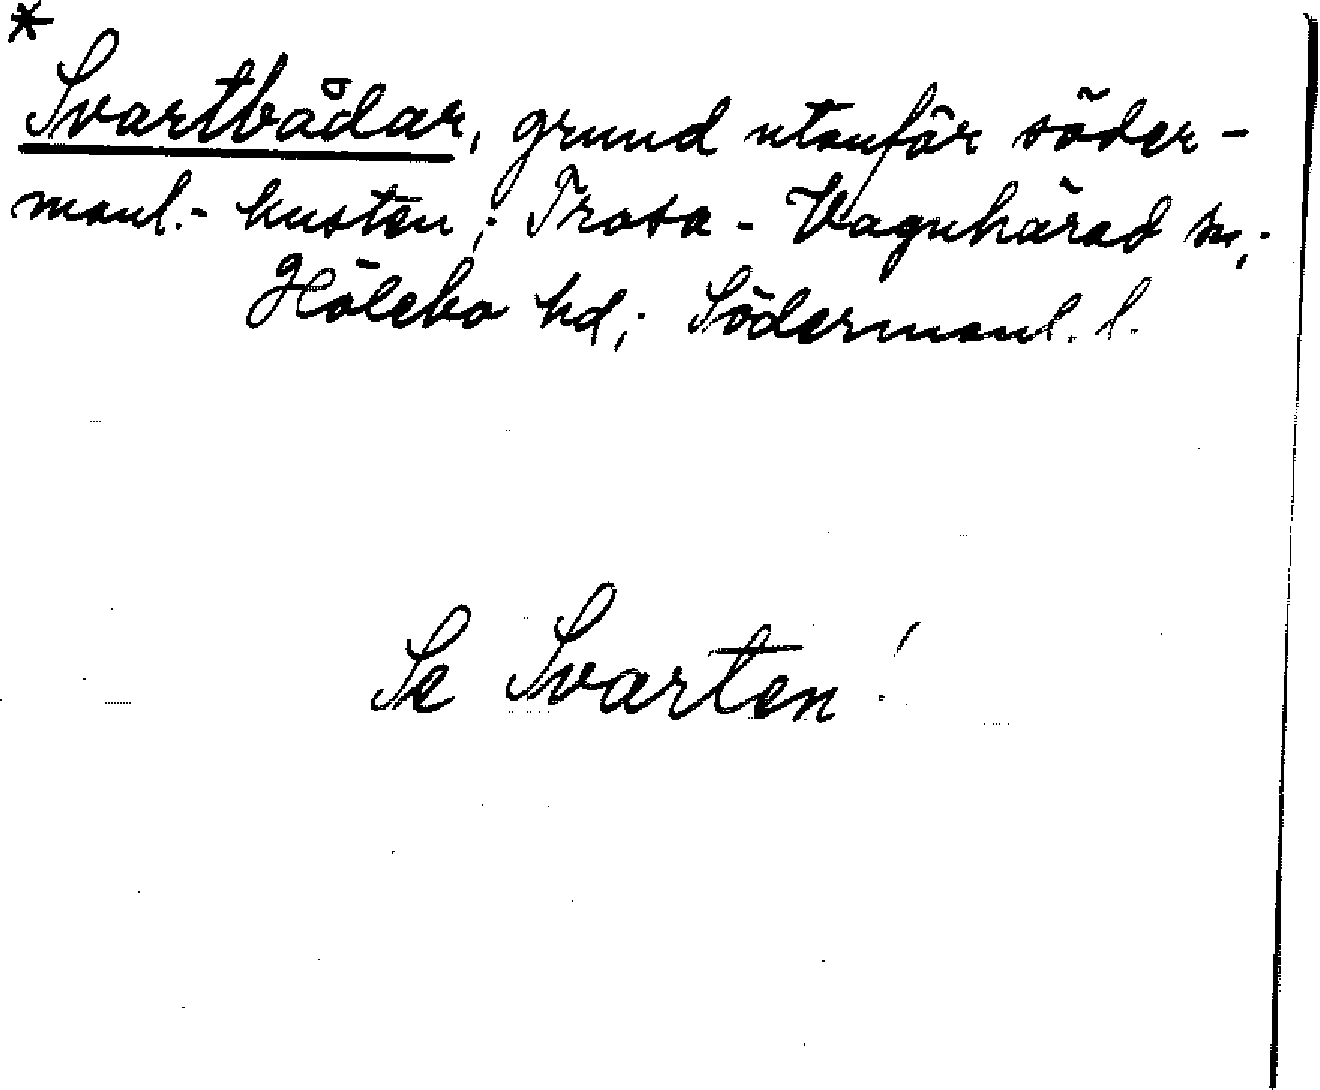 *
Svartbådar, grund utanför söder-
manl.- kusten; Trosa - Vagnhärad sn;
Hölebo hd; Södermanl. l.
Se Svarten!